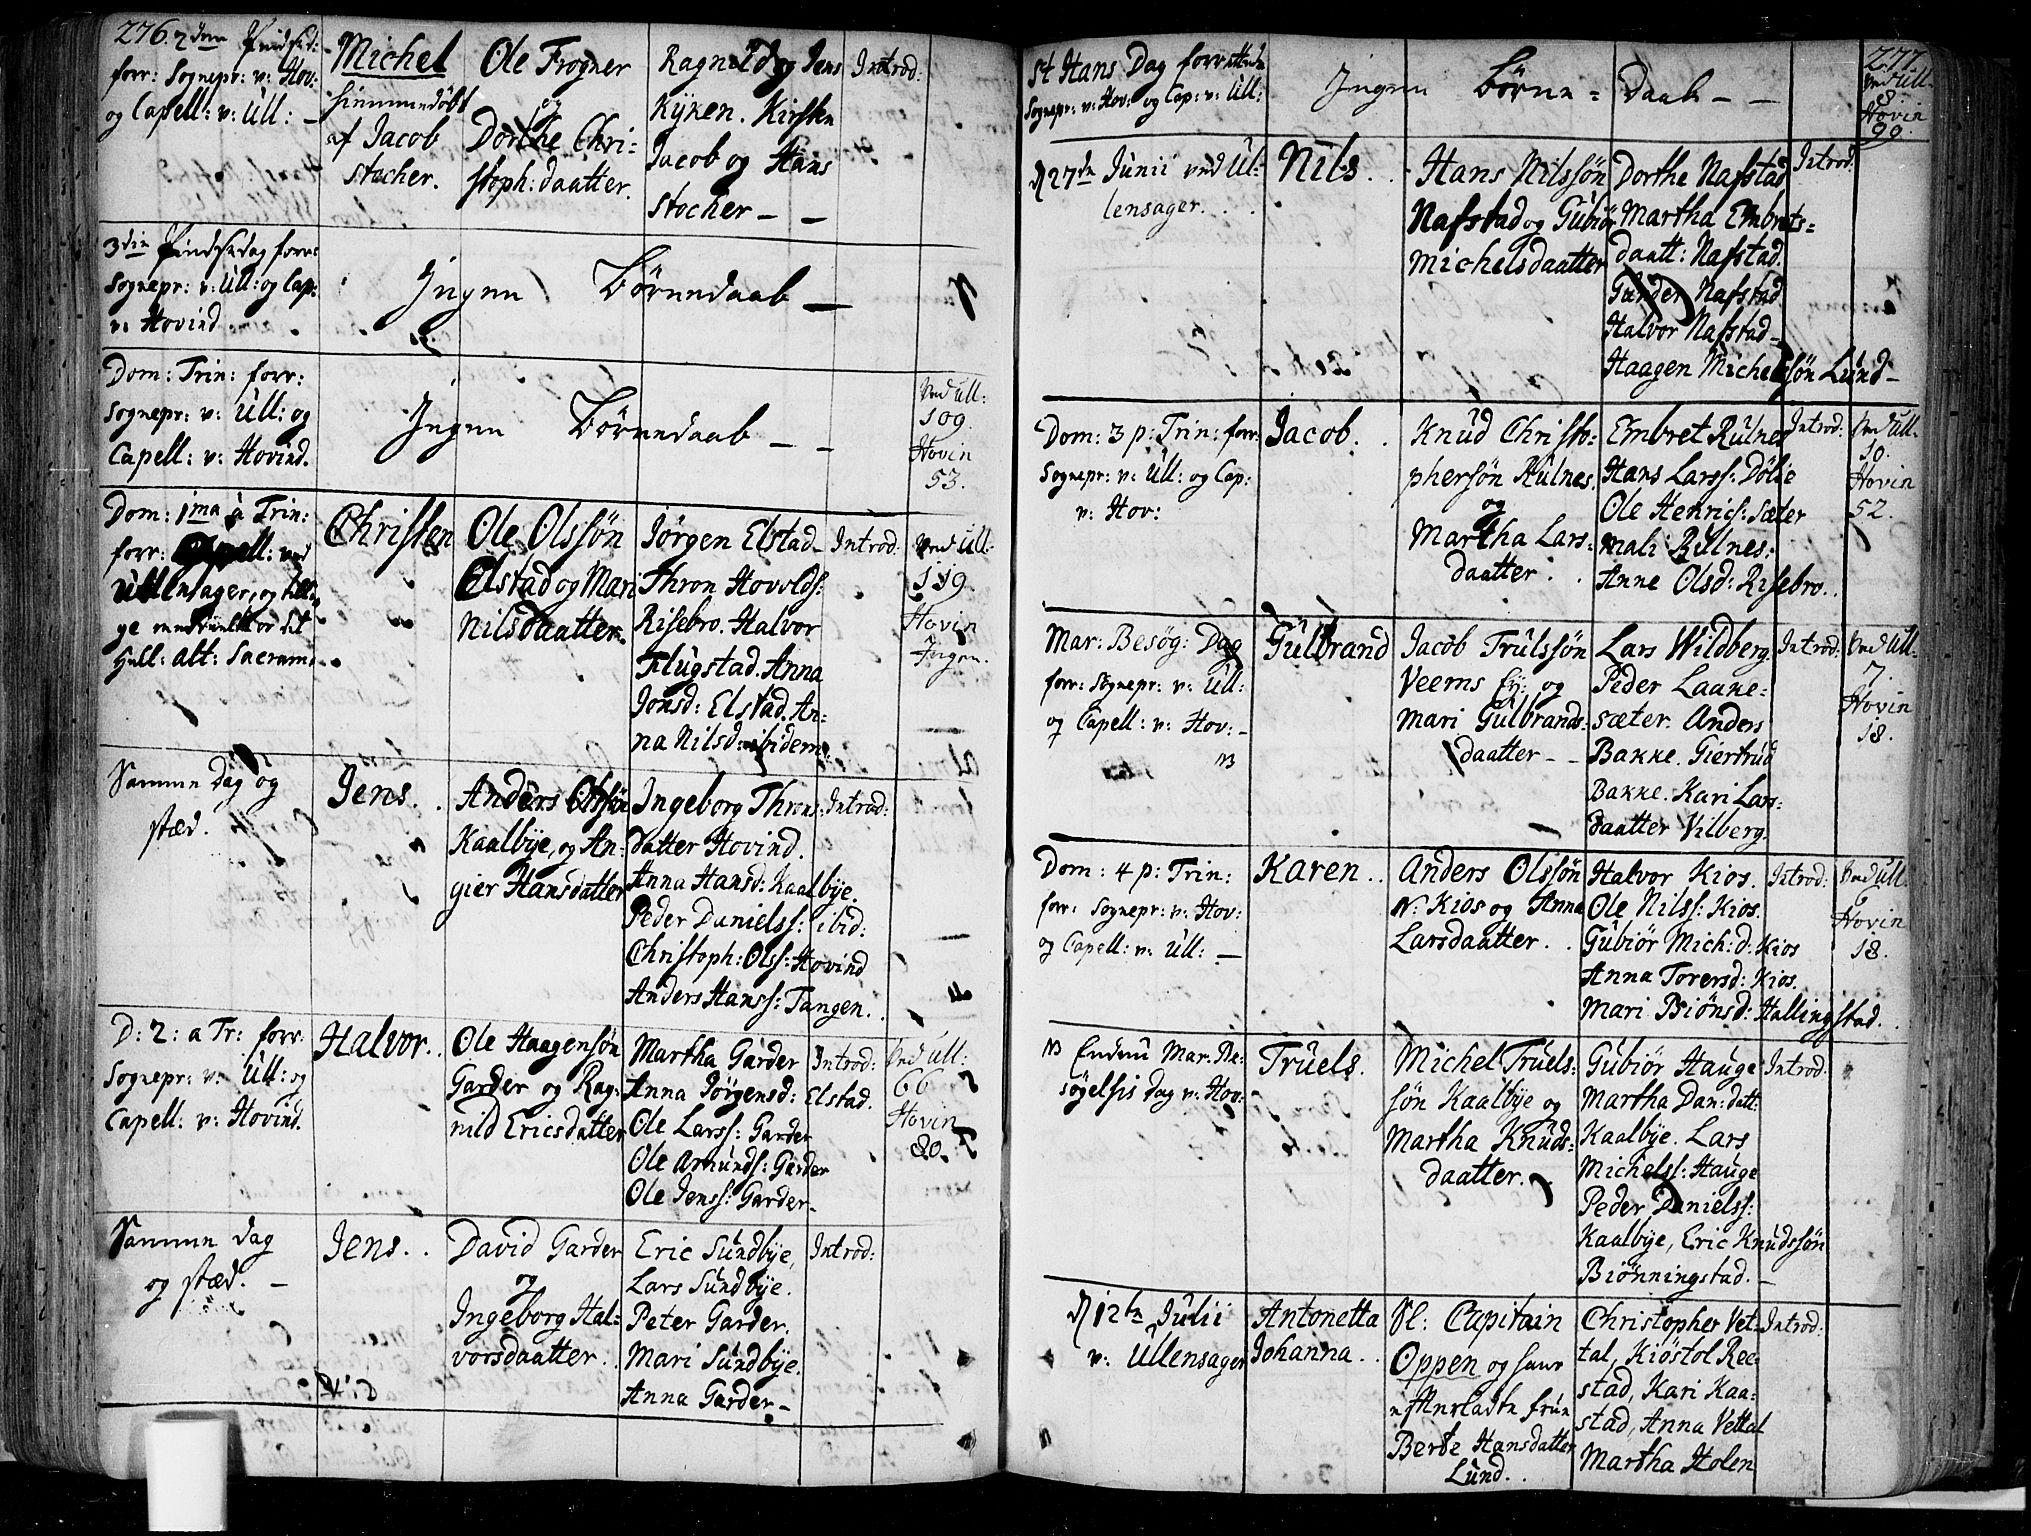 276.
2den Pindsed:
forr: Sognepr: v: Hov:
og Capell: v: Ull: –
Michel
hiemmedöbt
af Jacob
stocher.
Ole Frogner
og
Dorthe Chri-
stoph: daatter.
Ragnild og Jens
Kyken. Kirsten
Jacob og Hans
stocher – –
Introd:
3die Pindsedag forr:
Sognepr: v: Ull: og Cap:
v: Hovind
Ingen Börnedaab –
Dom: Trin: forr:
Sognepr: v: Ull: og
Capell: v: Hovind.
Ingen Börnedaab – –
Ved Ull:
109.
Hovin
53.
Dom: 1ma a Trin:
forr: Capell: ved
Ullensager, og
Hell: Alt: Sacram:
Christen
Ole Olssön
Elstad og Mari
Nilsdaatter.
Jörgen Elstad
Thron Hovolds:
Risebro. Halvor
Flugstad. Anna
Jonsd: Elstad. An-
na Nilsd: ibidem:
Introd:
Ved Ull:
119.
Hovin
Ingen.
Samme Dag og
stæd.
Jens.
Anders Olssön
Kaalbye, og An-
gier Hansdatter
Ingeborg Throns:
Datter Hovind.
Anna Hansd: Kaalbye.
Peder Danielss: ibid:
Christoph: Olss: Hovind
Anders Hanss: Tangen.
Introd:
D: 2: a Tr: forr.
Sognepr: v: Ull: og
Capell: v: Hovind.
Halvor.
Ole Haagensön
Garder og Rag-
nild Ericsdatter
Martha Garder
Anna Jörgensd: Elstad.
Ole Larss: Garder
Ole Amunds: Garder
Ole Jenss: Garder
Introd:
Ved Ull:
66
Hovin
80.
Samme dag
og stæd. –
Jens.
David Garder
og
Ingeborg Hal-
vorsdaatter.
Eric Sundbye,
Lars Sundbye.
Peter Garder.
Mari Sundbye.
Anna Garder –
Introd:
277.
St Hans Dag forrettede
Sognepr: v: Hov: og Cap: v: Ull:
Ingen Börne = daab – –
Ved Ull.
8
Hovin
99.
d 27de Junii ved Ul-
lensager.
Nils.
Hans Nilssön
Nafstad og Gubiör
Michelsdaatter
Dorthe Nafstad
Martha Embrets-
daatt: Nafstad.
Gunder Nafstad
Halvor Nafstad
Haagen Michelssön Lund –
Introd:
Dom: 3 p: Trin: forr.
Sognepr: v: Ull: og Cap:
v: Hov:
Jacob.
Knud Christo-
phersön Rulnes.
og
Martha Lars-
daatter.
Embret Rulnes
Hans Larss: Dölie
Ole Henrics: Sæter
Mali Rulnes:
Anne Olsd: Risebro.
Introd:
Ved Ull.
10.
Hovin
52.
Mar: Besög: Dag
forr: Sognepr: v: Ull:
og Capell: v: Hov: –
NB
Gulbrand
Jacob Trulssön
Veems Ey: og
Mari Gulbrands-
daatter – –
Lars Wildberg.
Peder Laane-
sæter. Anders
Bakke. Giertrud
Bakke. Kari Lars-
daatter Vilberg.
Introd:
Ved Ull:
7.
Hovin
18.
Dom: 4 p: Trin:
forr: Sognepr: v: Hov:
og Capell: v: Ull: –
Karen.
Anders Olssön
N: Kios og Anna
Larsdaatter.
Halvor Kios.
Ole Nilss: Kios.
Gubiör Mich: d: Kios
Anna Torersd: Kios.
Mari Biönsd: Hallingstad.
Introd:
Ved Ull:
6
Hovin
18.
NB Endnu Mar. Be-
söyelsis Dag v: Hov:
Truels.
Michel Truels-
sön Kaalbye og
Martha Knuds-
daatter.
Gubiör Hauge
Martha Dan: datt:
Kaalbye. Lars
Michelss: Hauge
Peder Danielss:
Kaalbye, Eric Knudssön
Biönningstad. –
Introd:
d 12te Julii
v: Ullensager
Antonetta
Johanna.
Sl: Capitain
Oppen og haw
efterladte frue
Berte Hansdatter
Lund.
Christopher Vet-
tal, Kiöstol Ree-
stad, Kari Kaa-
stad, Anna Vettal
Martha Holen
Introd: